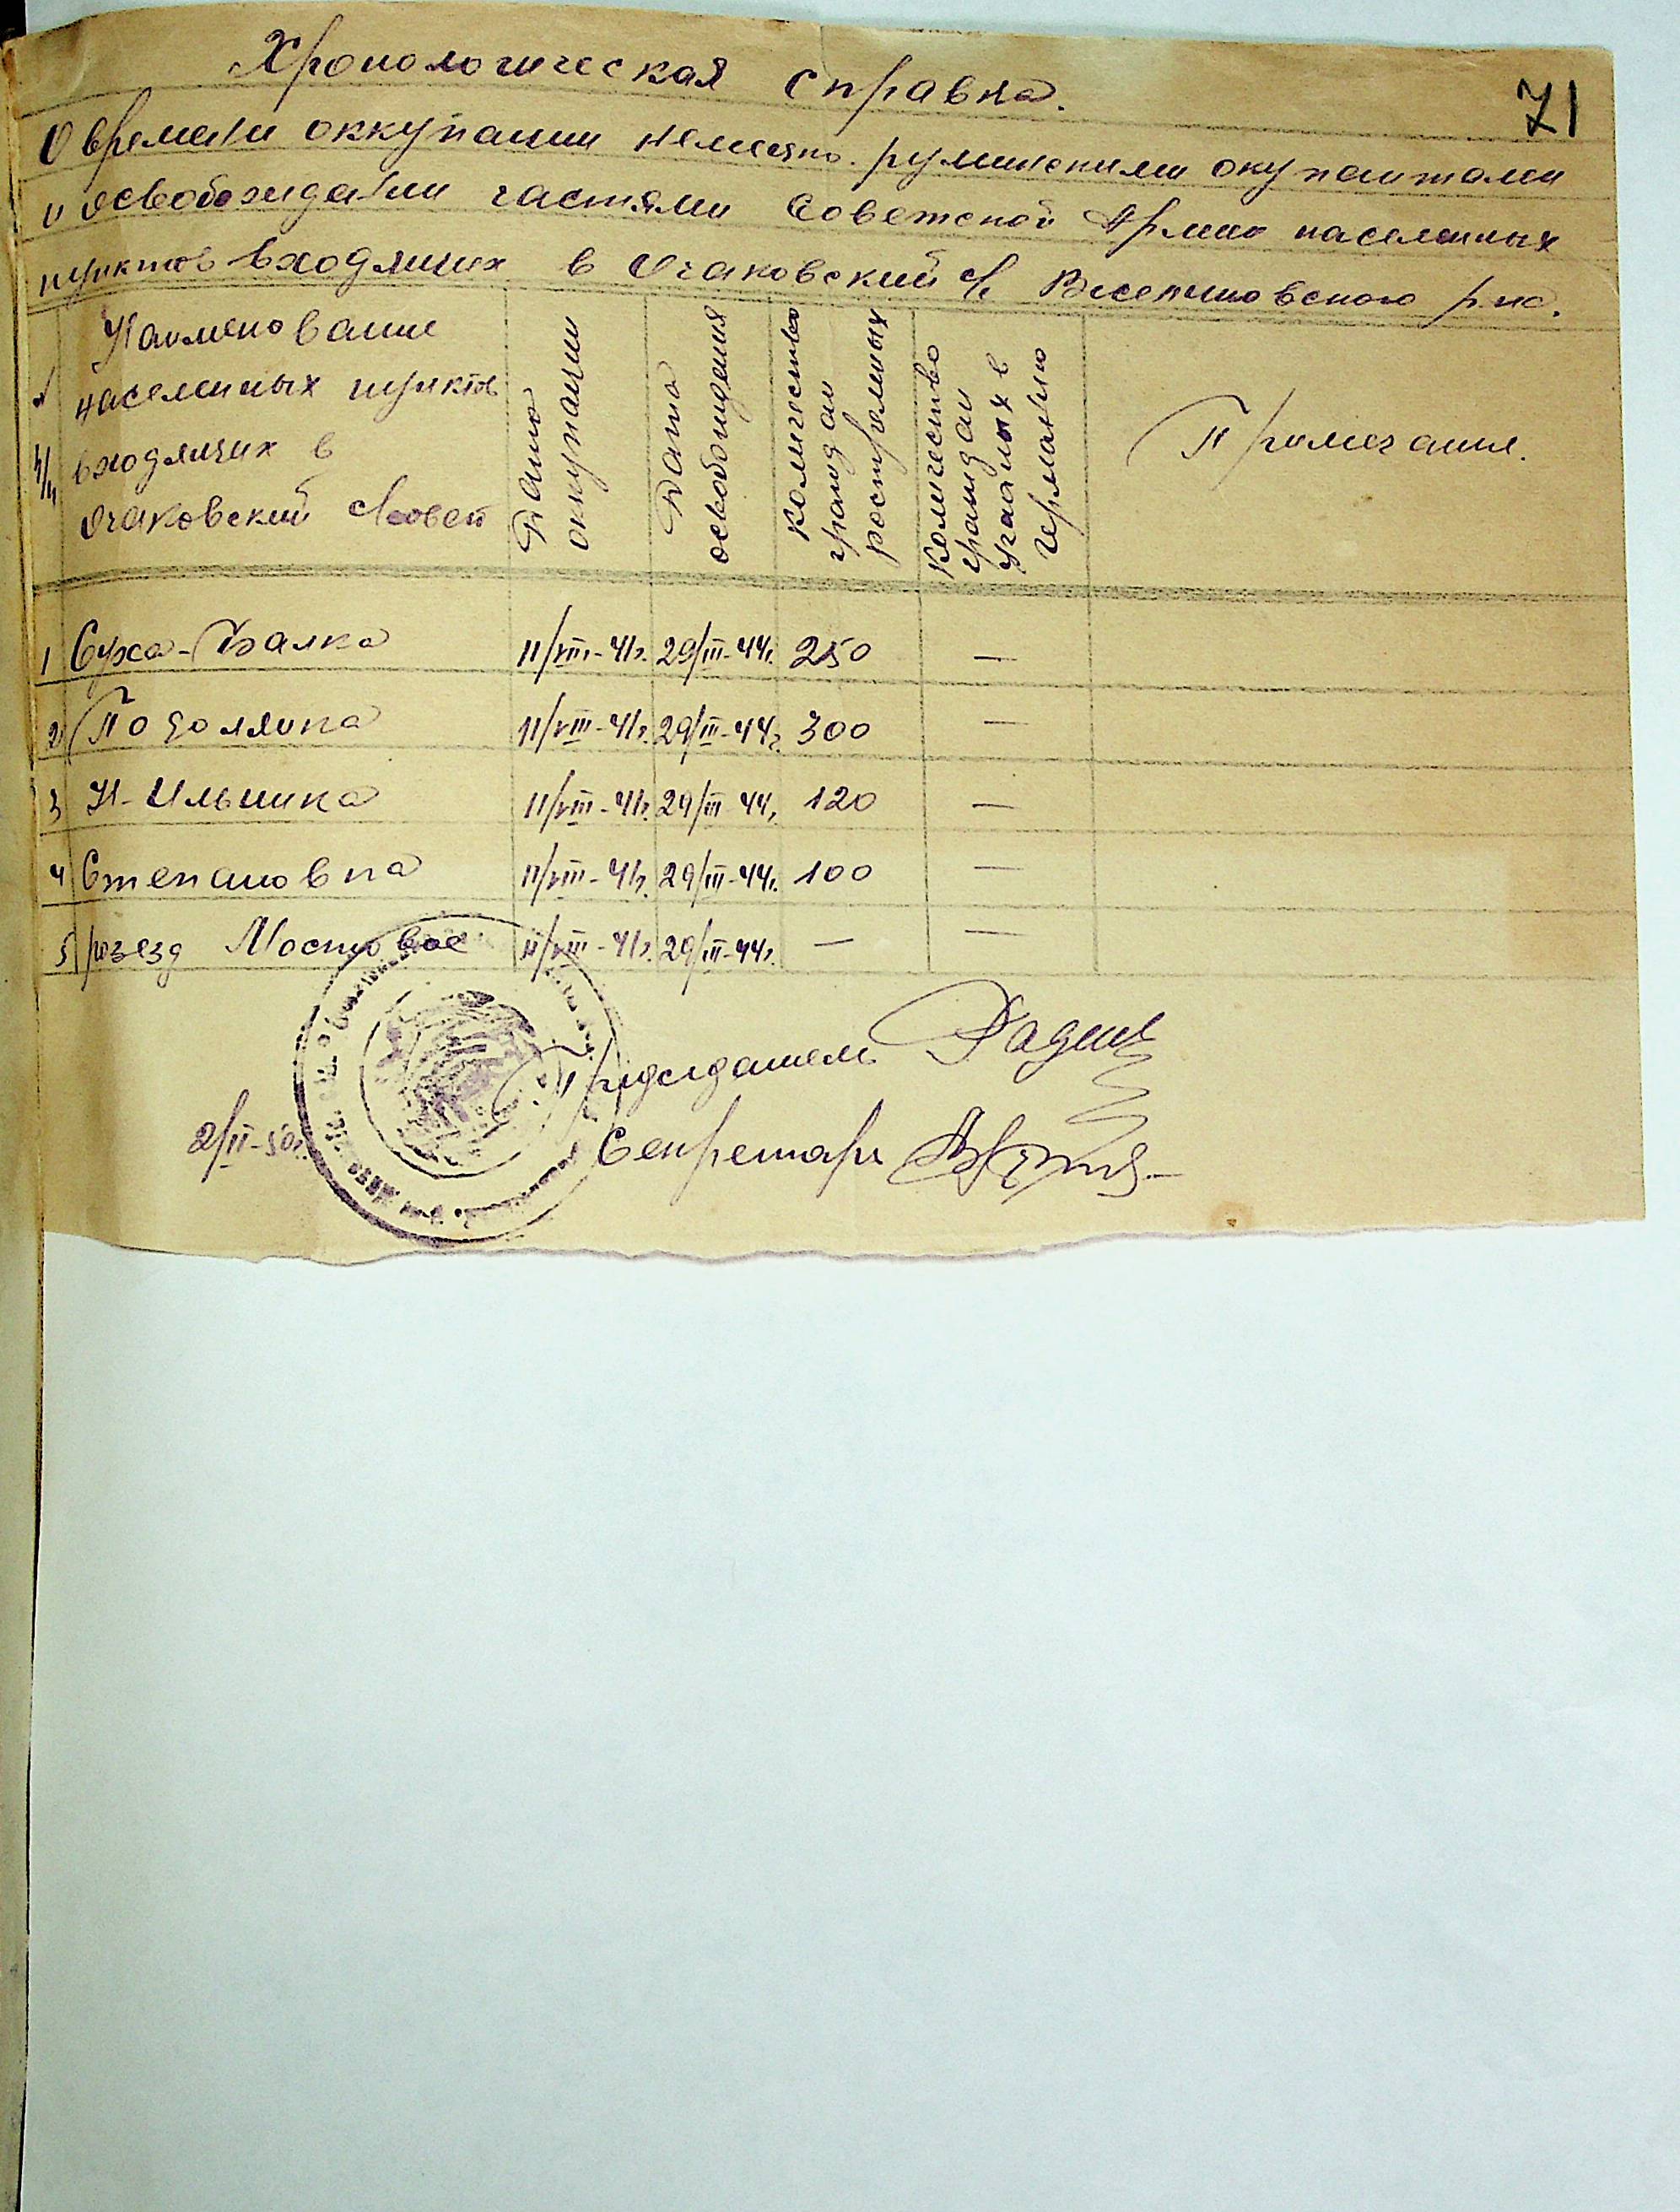 71
Хронологическая справка.
О времени оккупации немецко-румынскими окупантами
и освобождении частями Советской Армии населенных
пунктов входящих в Очаковский с/с Веселиновского р-на.
№ п/п
Наименование
населенных пунктов
входящих в
Очаковский с/совет
Дата
оккупации
Дата
освобождения
Количество
граждан
растрелянных
Количество
граждан
угнаных в
Германию
Примечания.
1 Суха-Балка 11/VIII-41г. 29/III-44г. 250 —
2 Подолянка 11/VIII-41г. 29/III-44г. 300 —
3 Н-Ильинка 11/VIII-41г. 29/III-44г. 120 —
4 Степановка 11/VIII-41г. 29/III-44г. 100 —
5 розезд Мостовое 11/VIII-41г. 29/III-44г. — —
Председатель
2/II-50г.
Секретарь